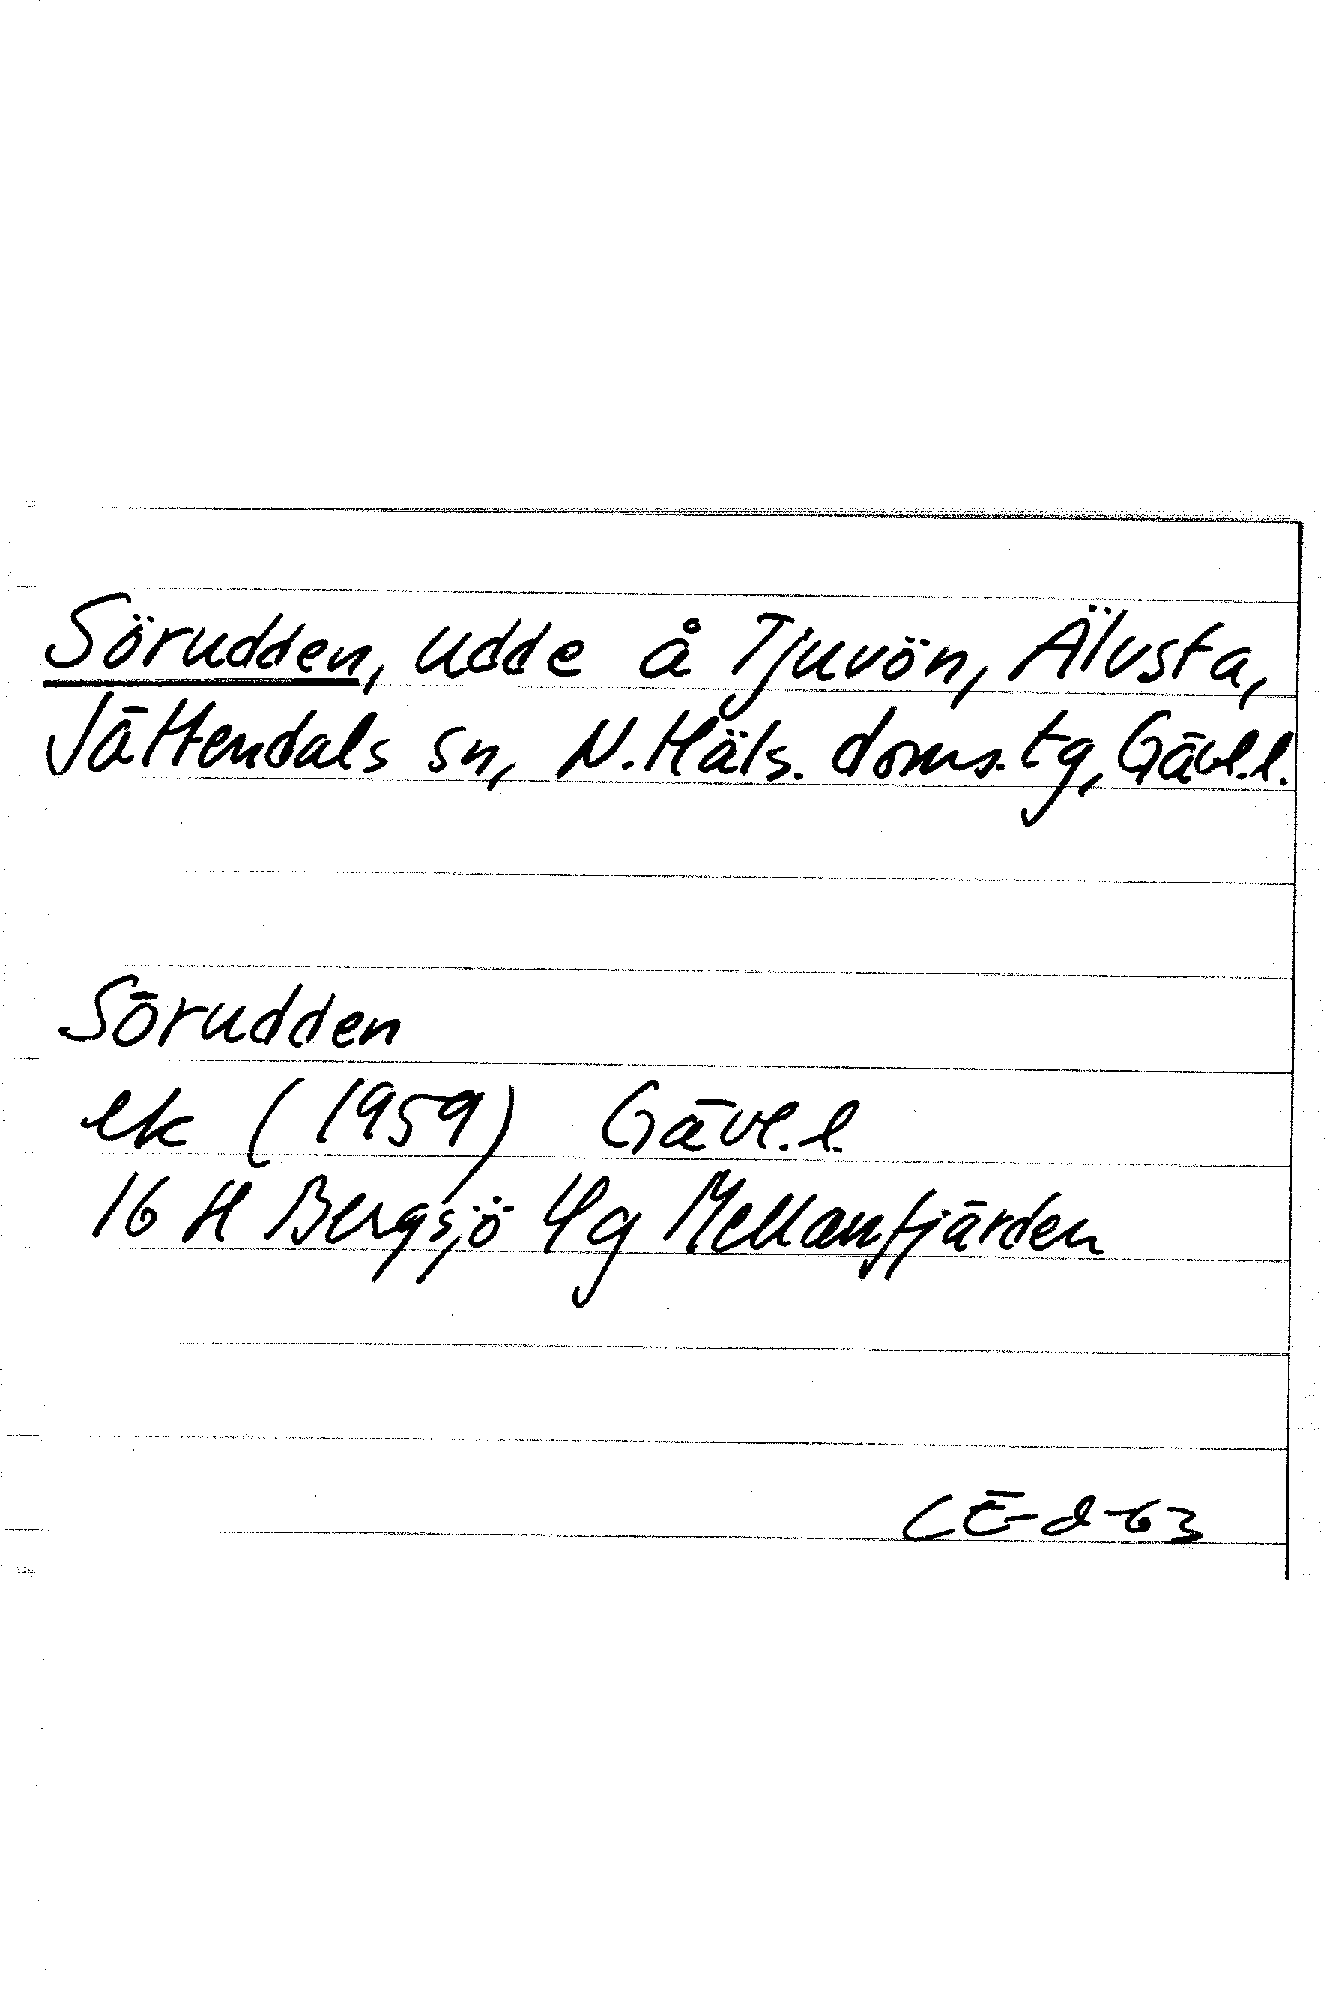 Sörudden, udde å Tjuvön, Älvsta,
Jättendals sn, N. Häls. doms. tg, Gävl.l.
Sörudden
ek (1959) Gävl.l.
16 H Bergsjö 4g Mellanfjärden
CE-d-63